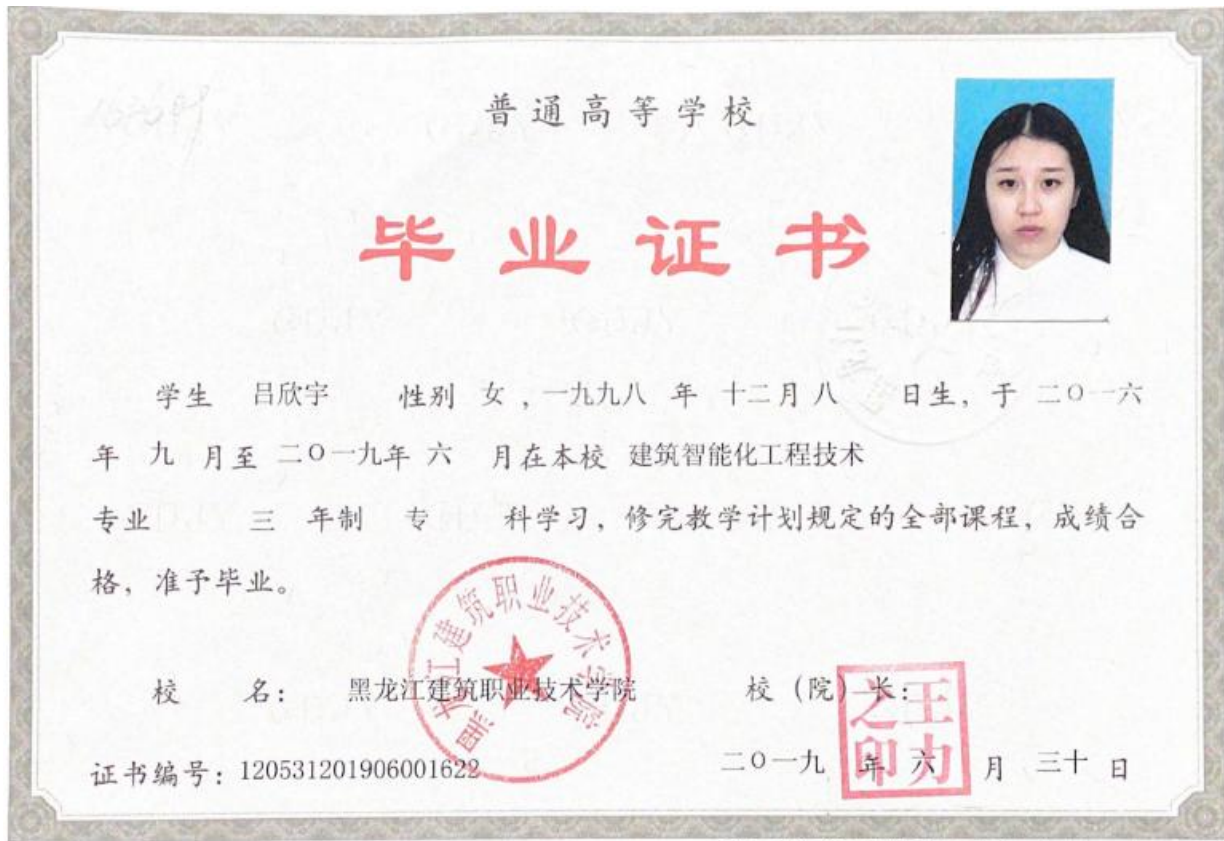 普通高等学校
毕业证书
学生 吕欣宇 性别 女，一九九八 年 十二月八 日生，于 二〇一六
年 九 月至 二〇一九年 六 月在本校 建筑智能化工程技术
专业 三 年制 专 科学习，修完教学计划规定的全部课程，成绩合
格，准予毕业。
黑龙江建筑职业技术学院
校 名： 黑龙江建筑职业技术学院 校（院）长：
王力之印
证书编号：120531201906001622 二〇一九 年 六 月 三十 日